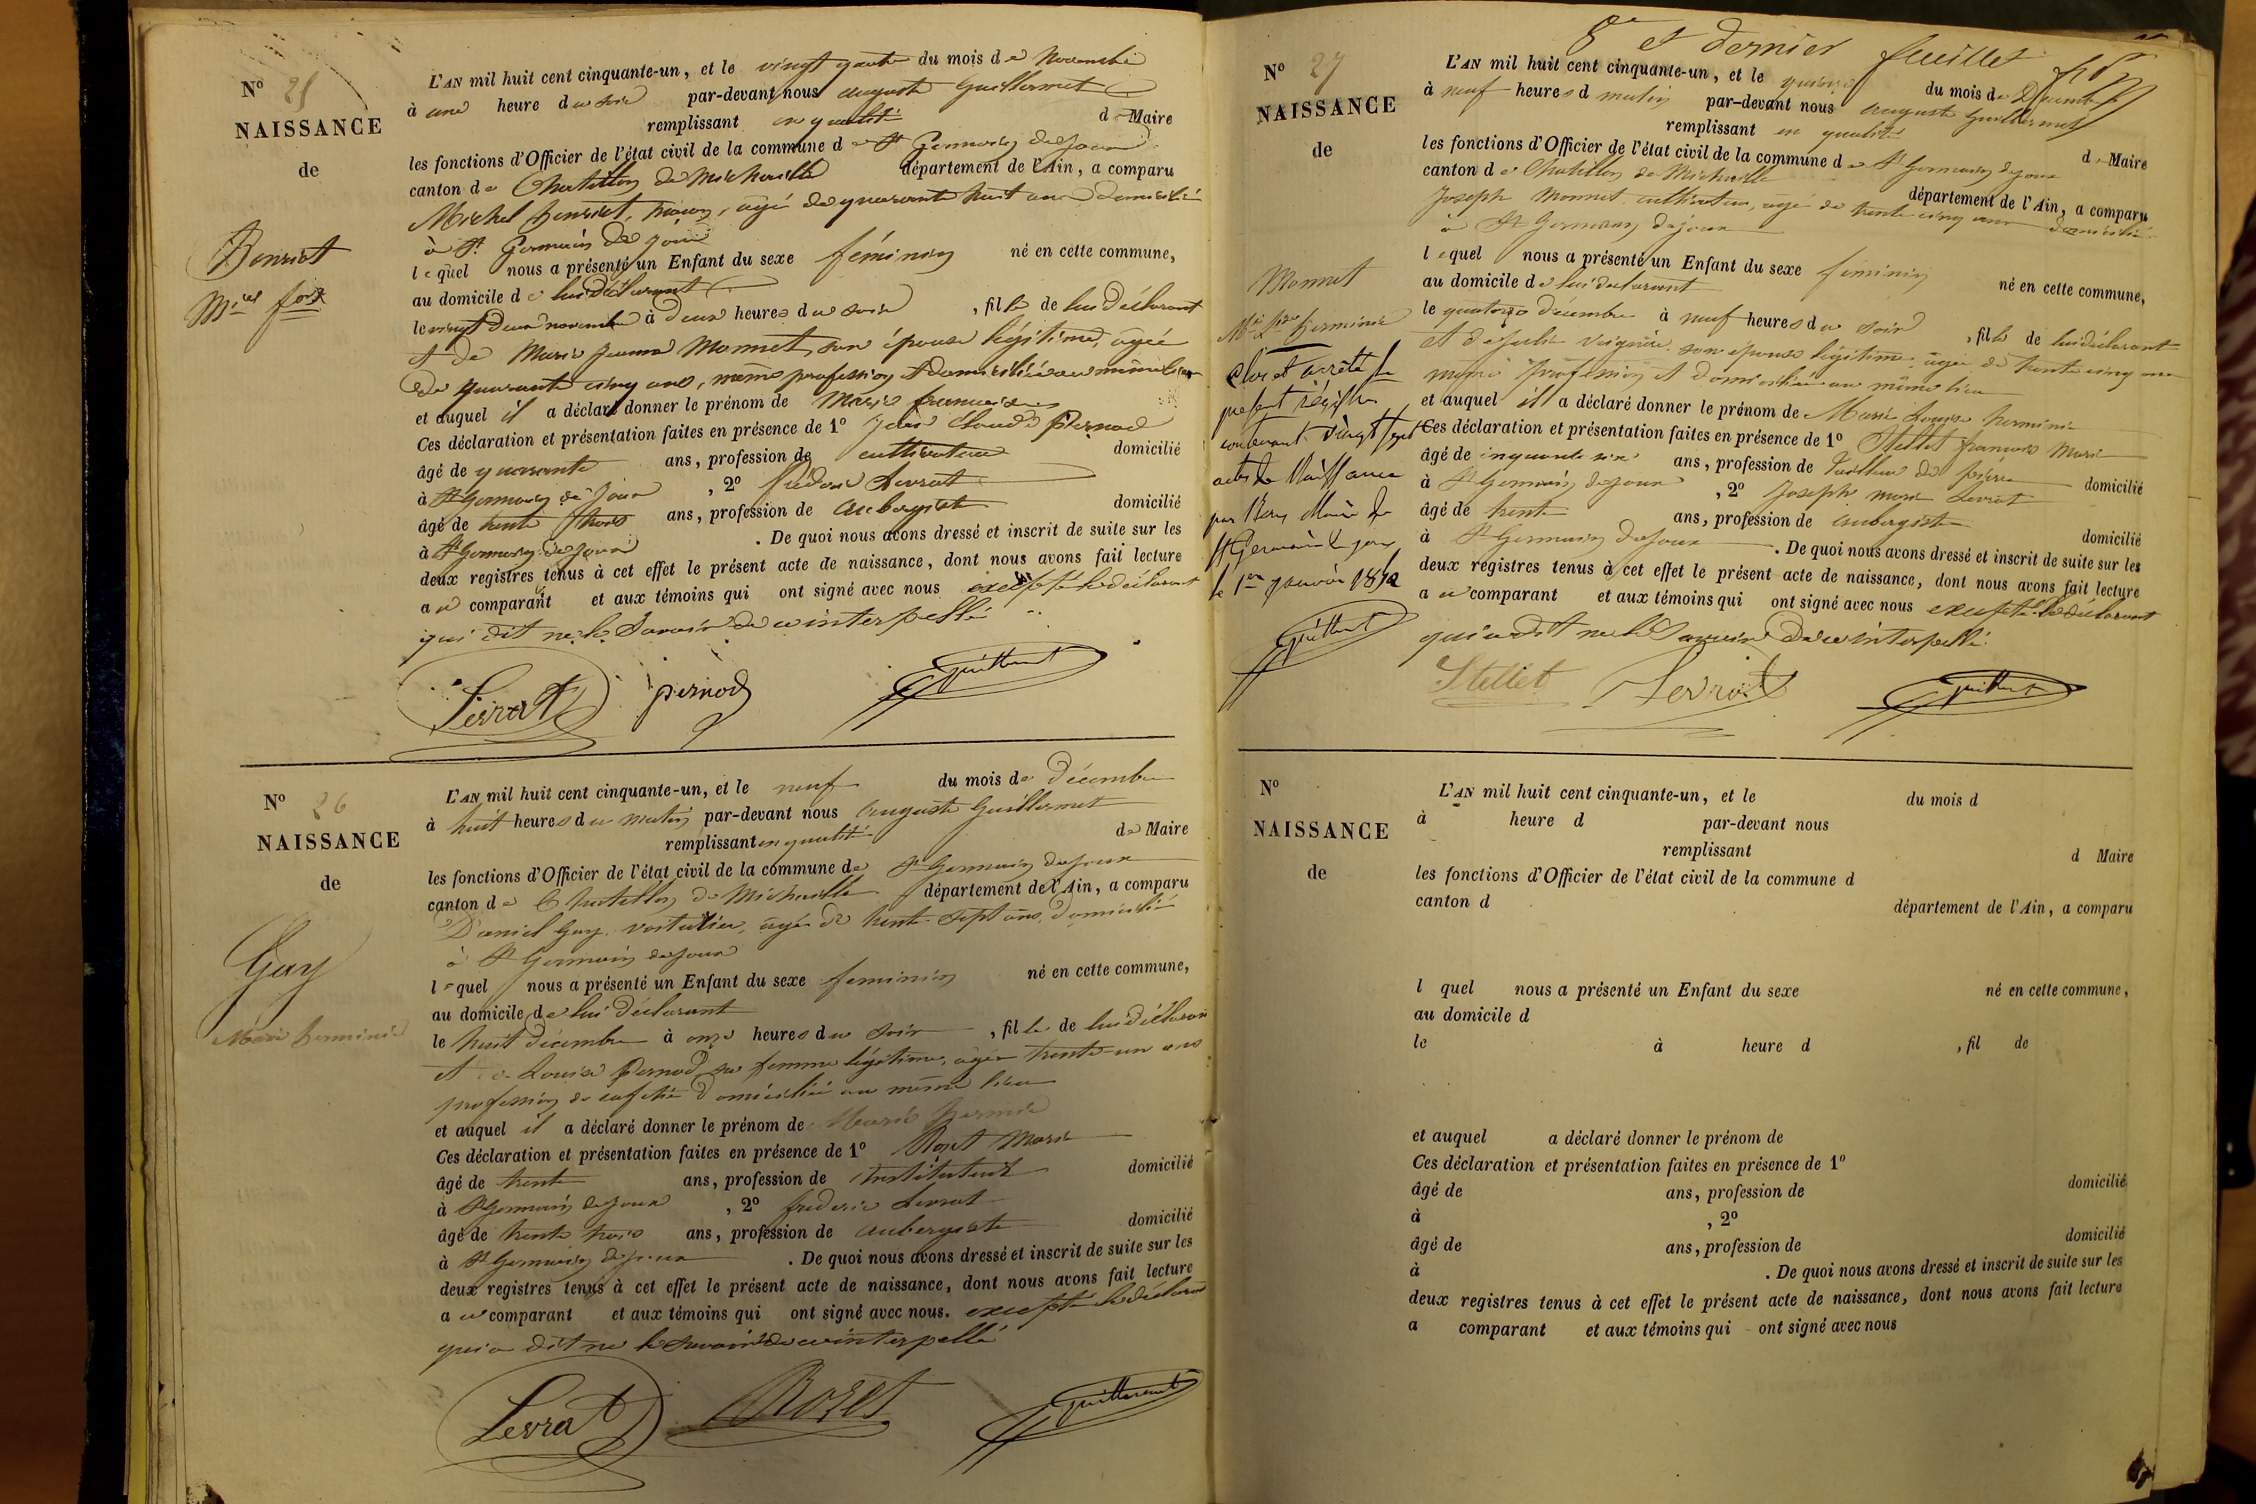 N° 25
NAISSANCE
de
Benriet
M.ie f.oise
L'AN mil huit cent cinquante-un, et le vingt quatre du mois de Novembre
à une heure du soir par-devant nous auguste Guillermet
remplissant en qualité de Maire
les fonctions d'Officier de l'état civil de la commune de St Germain de Joux
canton de Chatillon de Michaille département de l'Ain, a comparu
Michel, âgé de quarante huit ans domicilié
à St Germain de Joux
lequel nous a présenté un Enfant du sexe féminin né en cette commune,
au domicile de lui déclarant
le vingt deux novembre à deux heures du soir, fille de lui déclarant
et de Marie Jeanne Monnet, son épouse légitime, agée
de quarante cinq ans, même profession et domiciliée au même lieu
et auquel il a déclaré donner le prénom de Marie françoise
Ces déclaration et présentation faites en présence de 1° Jean Claude Pernod
âgé de quarante ans, profession de cultivateur domicilié
à St Germain de Joux, 2° fréderic Levrat
âgé de trente trois ans, profession de aubergiste domicilié
à St Germain de Joux. De quoi nous avons dressé et inscrit de suite sur les
deux registres tenus à cet effet le présent acte de naissance, dont nous avons fait lecture
au comparant et aux témoins qui ont signé avec nous excepté le déclarant
qui dit ne le savoir de ce interpellé
Levrat pernod Guillermet
N° 26
NAISSANCE
de
Gay
Marie herminie
L'AN mil huit cent cinquante-un, et le neuf du mois de décembre
à huit heures du matin par-devant nous auguste Guillermet
remplissant en qualité de Maire
les fonctions d'Officier de l'état civil de la commune de St Germain de Joux
canton de Chatillon de Michaille département de l'Ain, a comparu
Daniel Gay, voiturier, agé de trente-sept ans, domicilié
à St Germain de Joux
lequel nous a présenté un Enfant du sexe feminin né en cette commune,
au domicile de lui déclarant
le huit décembre à onze heures du soir, fille de lui déclarant
et de Louise Pernod sa femme légitime, agée trente-un ans
profession de domiciliée au même lieu
et auquel il a déclaré donner le prénom de Marie
Ces déclaration et présentation faites en présence de 1° Rozet Marie
âgé de trente ans, profession de instituteur domicilié
à St Germain de Joux, 2° frederic Levrat
âgé de trente trois ans, profession de aubergiste domicilié
à St Germain de Joux. De quoi nous avons dressé et inscrit de suite sur les
deux registres tenus à cet effet le présent acte de naissance, dont nous avons fait lecture
au comparant et aux témoins qui ont signé avec nous. excepté le déclarant
qui a dit ne le savoir de ce interpellé
Levrat Rozet Guillermet
8e et dernier feuillet
N° 27
NAISSANCE
de
Monnet
M.ie L.se herminie
Clos et arrêté le
présent régistre
contenant vingt sept
actes de Naissance
par Nous Maire de
St Germain de joux
le 1er janvier 1852
Guillermet
L'AN mil huit cent cinquante-un, et le quinze du mois de Décembre
à neuf heures d matin par-devant nous auguste Guillermet
remplissant en qualité de Maire
les fonctions d'Officier de l'état civil de la commune de St Germain de Joux
canton de Chatillon de Michaille département de l'Ain, a comparu
Joseph Monnet, cultivateur, agé de trente cinq ans domicilié
à St Germain de joux
lequel nous a présenté un Enfant du sexe féminin né en cette commune,
au domicile de lui déclarant
le quatorze décembre à neuf heures du soir, fille de lui déclarant
et de Julie, son épouse légitime, agée de trente cinq ans
même profession et domiciliée au même lieu
et auquel il a déclaré donner le prénom de Marie Louise herminie
Ces déclaration et présentation faites en présence de 1° Stellet françois Marie
âgé de cinquante six ans, profession de tailleur de pierre domicilié
à St Germain de joux, 2° Joseph marie Levrat
âgé de trente ans, profession de aubergiste domicilié
à St Germain de Joux. De quoi nous avons dressé et inscrit de suite sur les
deux registres tenus à cet effet le présent acte de naissance, dont nous avons fait lecture
au comparant et aux témoins qui ont signé avec nous excepté le déclarant
qui a dit ne le savoir de ce interpellé
Stellet Levrat Guillermet
N°
NAISSANCE
de
L'AN mil huit cent cinquante-un, et le du mois d
à heure d par-devant nous
remplissant d Maire
les fonctions d'Officier de l'état civil de la commune d
canton d département de l'Ain, a comparu
l quel nous a présenté un Enfant du sexe né en cette commune,
au domicile d
le à heure d , fil de
et auquel a déclaré donner le prénom de
Ces déclaration et présentation faites en présence de 1°
âgé de ans, profession de domicilié
à , 2°
âgé de ans, profession de domicilié
à . De quoi nous avons dressé et inscrit de suite sur les
deux registres tenus à cet effet le présent acte de naissance, dont nous avons fait lecture
a comparant et aux témoins qui ont signé avec nous